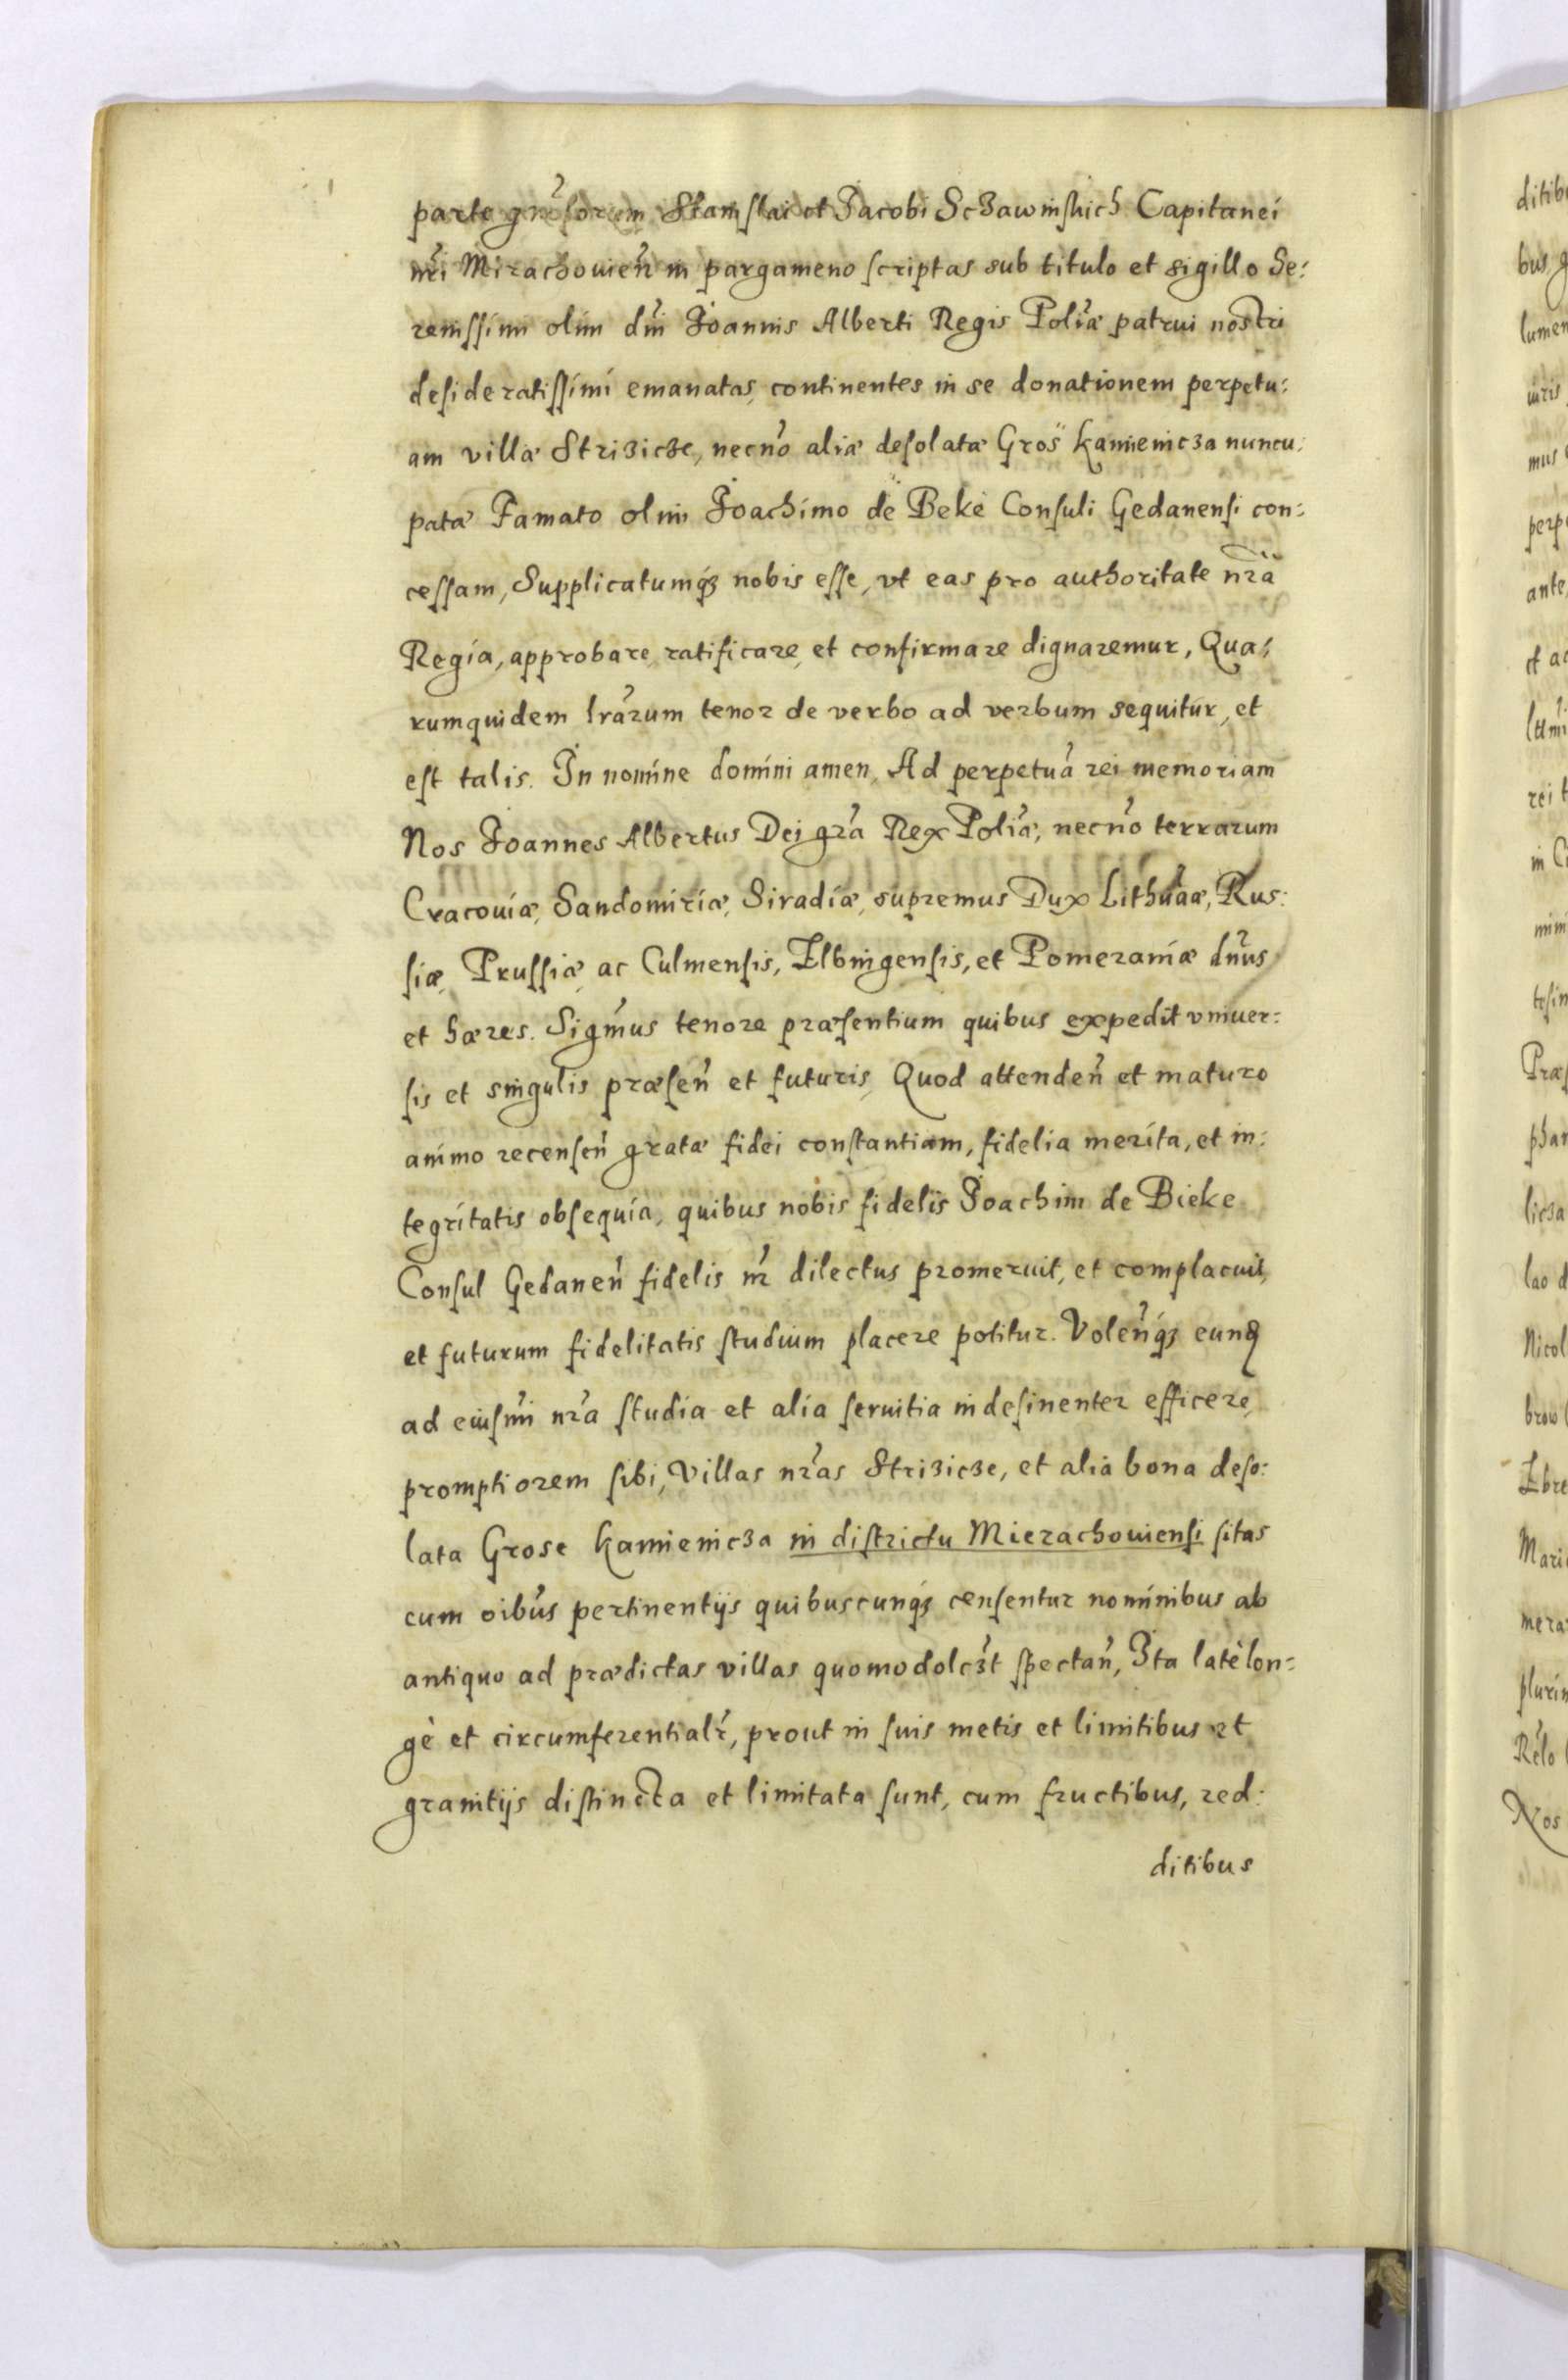 parte gnẽsorum Stanislai et Jacobi Sczawinskich Capitanei
nr̃i Mirachouień in pargameno scriptas sub titulo et sigillo Se:
renissimi olim dñi Joannis Alberti Regis Poliæ patrui nostri
desideratissimi emanatas, continentes in se donationem perpetu:
am villæ Strizicze, necnõ aliæ desolatæ Gros Kamienicza nuncu:
patæ Famato olim Joachimo de Beke Consuli Gedanensi con:
cessam, Supplicatumq́ʒ nobis esse, vt eas pro authoritate nr̃a
Regia, approbare, ratificare, et confirmare dignaremur, Qua:
rumquidem lrãrum tenor de verbo ad verbum sequitur, et
est talis. In nomine domini amen, Ad perpetuã rei memoriam
Nos Joannes Albertus Dei gr̃a Rex Poliæ, necnõ terrarum
Cracouiæ, Sandomiriæ, Siradiæ, supremus Dux Lithuãæ, Rus:
siæ, Prussiæ, ac Culmensis, Elbingensis, et Pomeraniæ dñus
et hæres. Sigm̃us tenore præsentium quibus expedit vniuer:
sis et singulis præseñ et futuris, Quod attendeñ et maturo
animo recenseñ gratæ fidei constantiam, fidelia merita, et in:
tegritatis obsequia, quibus nobis fidelis Joachim de Bieke
Consul Gedaneñ fidelis nr̃ dilectus promeruit, et complacuit,
et futurum fidelitatis studium placere potitur. Voleñq́ʒ eunq
ad eiusm̃i nr̃a studia et alia seruitia indesinenter efficere,
promptiorem sibi, Villas nr̃as Strizicze, et alia bona deso:
lata Grose Kamienicza in districtu Mierachouiensi sitas
cum oib̃us pertinentijs quibuscunq́ʒ censentur nominibus ab
antiquo ad prædictas villas quomodolcʒt spectañ, Ita latè lon:
gè et circumferentialr̃, prout in suis metis et limitibus et
granitijs distincta et limitata sunt, cum fructibus, red:
ditibus